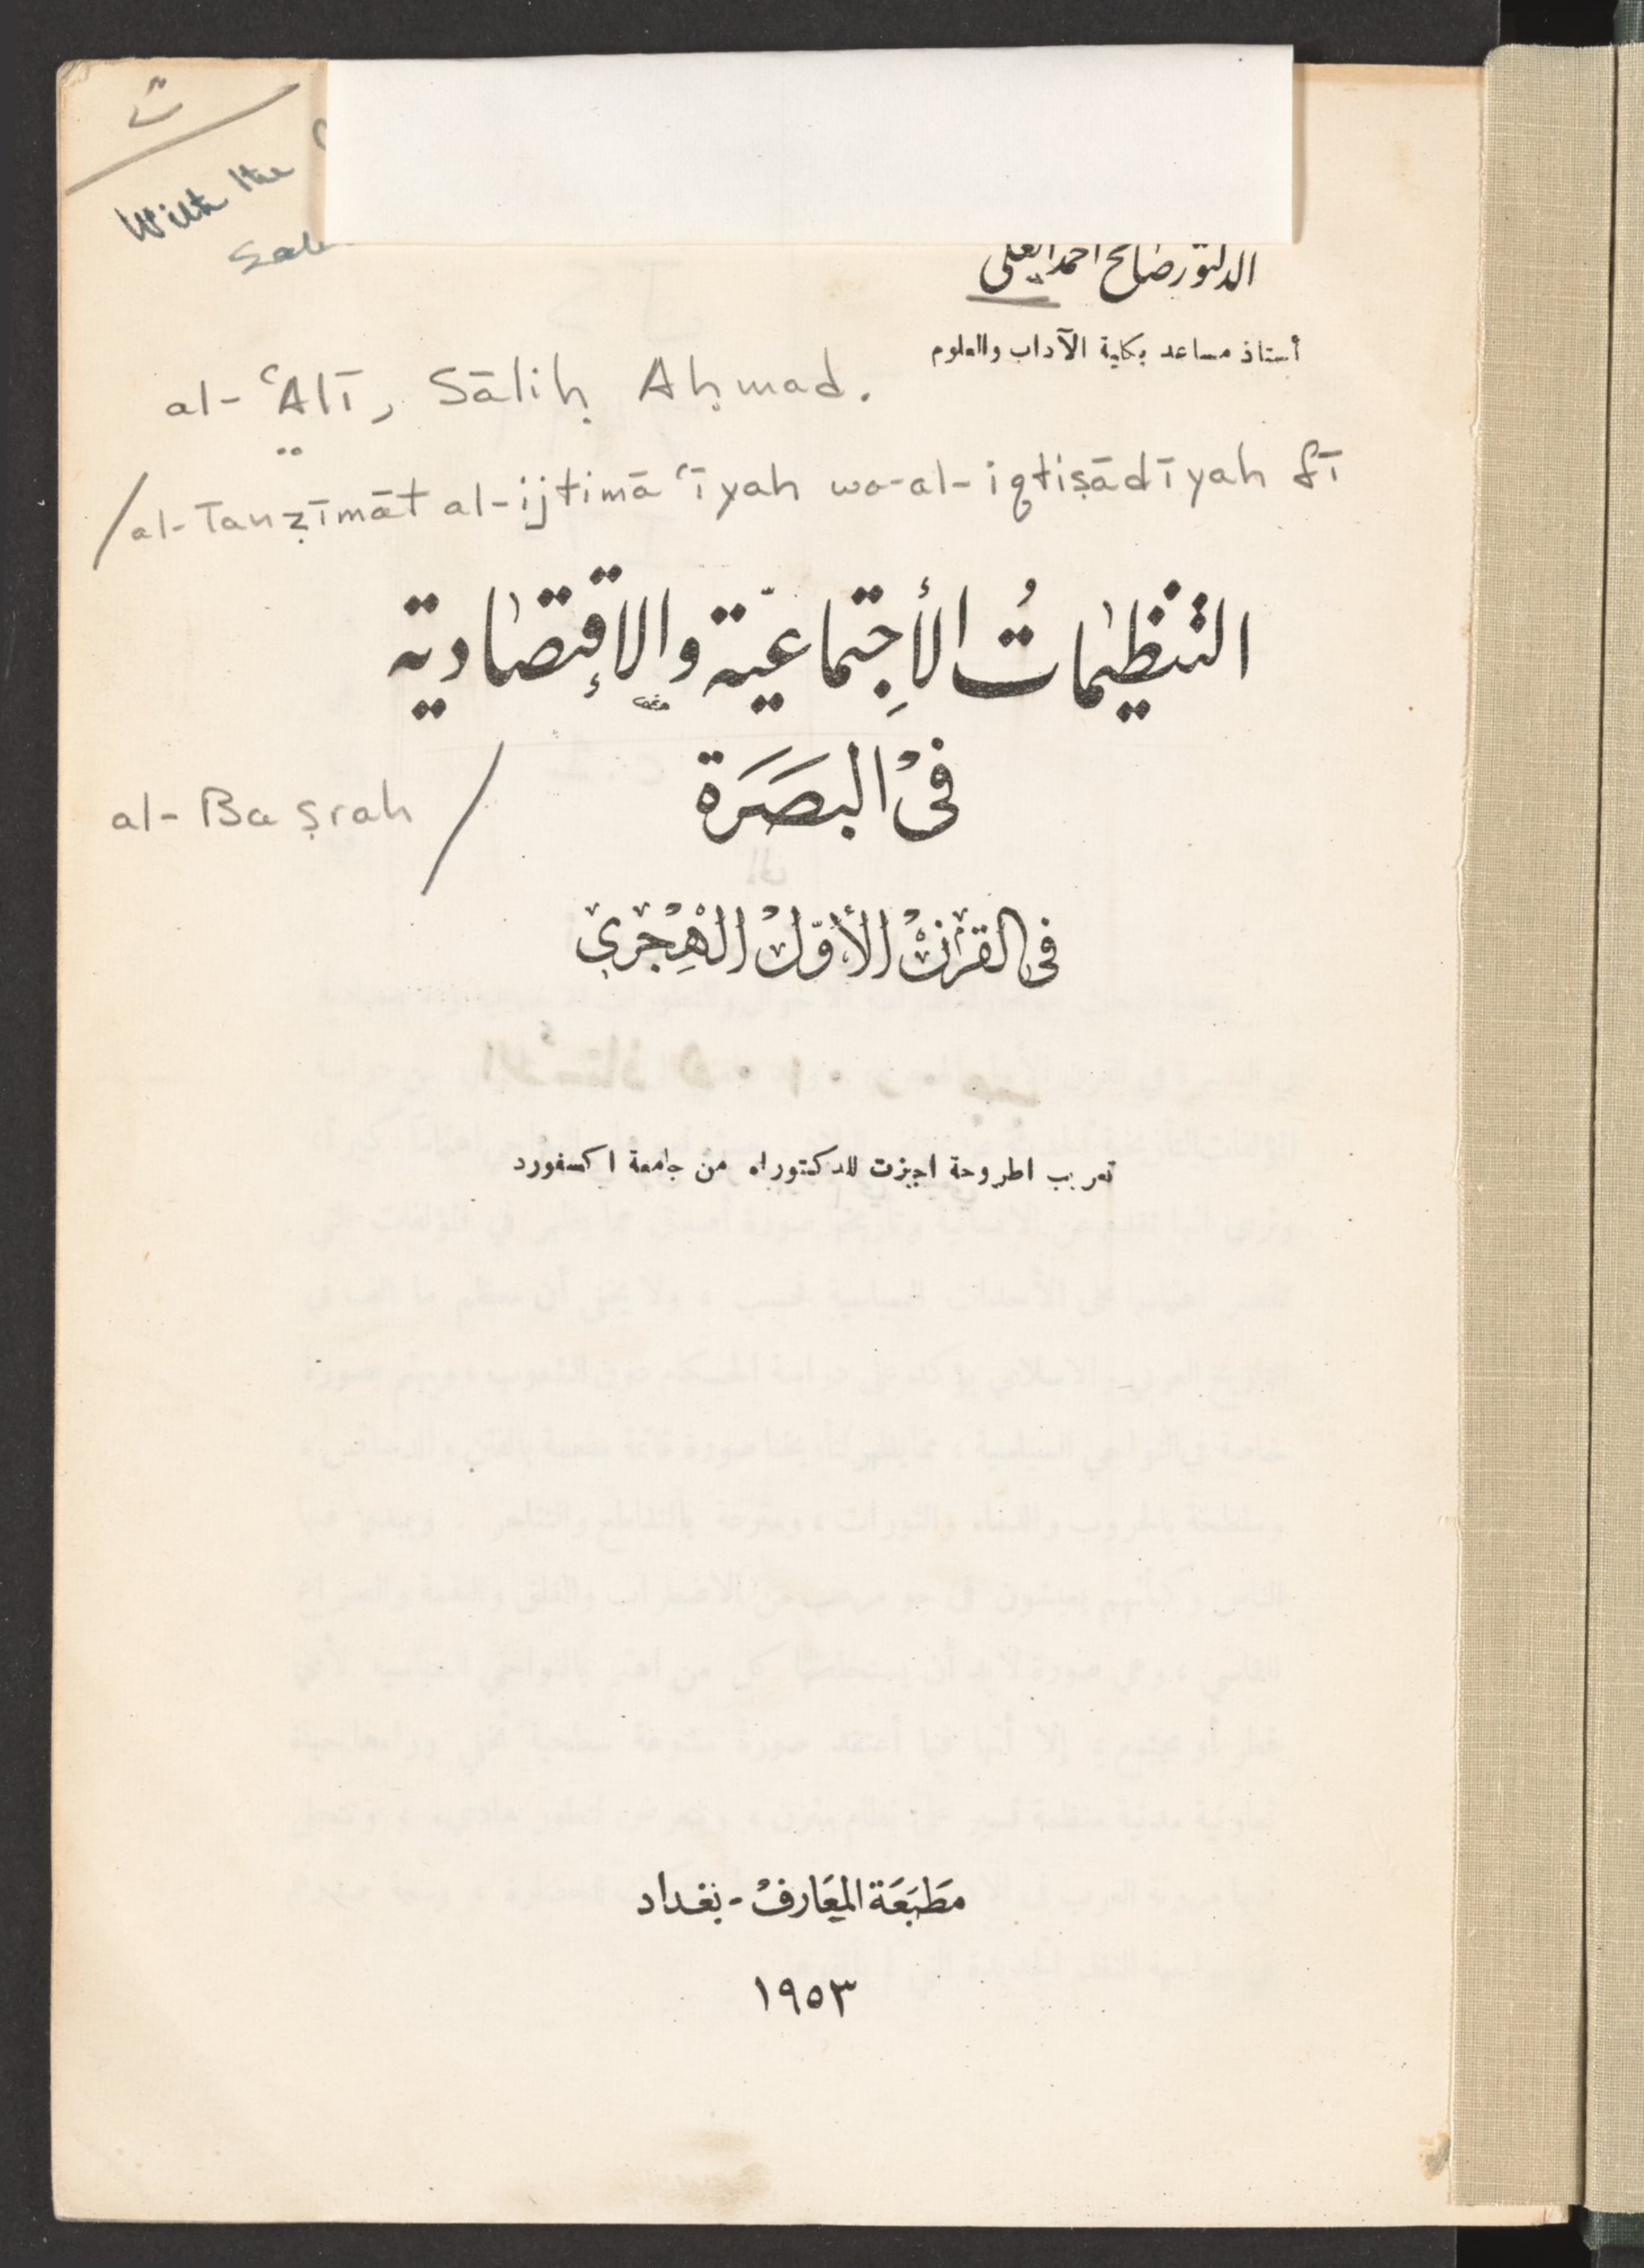 ت
With the
الدكتور صالح احمد العلي
أستاذ مساعد بكلية الآداب والعلوم
al-ʿAlī, Sāliḥ Aḥmad.
/al-Tanẓīmāt al-ijtimāʿīyah wa-al-iqtiṣādīyah fī
التنظيماتُ الأجِتماعيّة والإقتصادية
في البصَرَة
al-Baṣrah /
في القرن الأوّل الهِجري
تعريب اطروحة اجيزت للدكتوراه من جامعة اكسفورد
مَطبَعَة المعَارف - بغداد
١٩٥٣